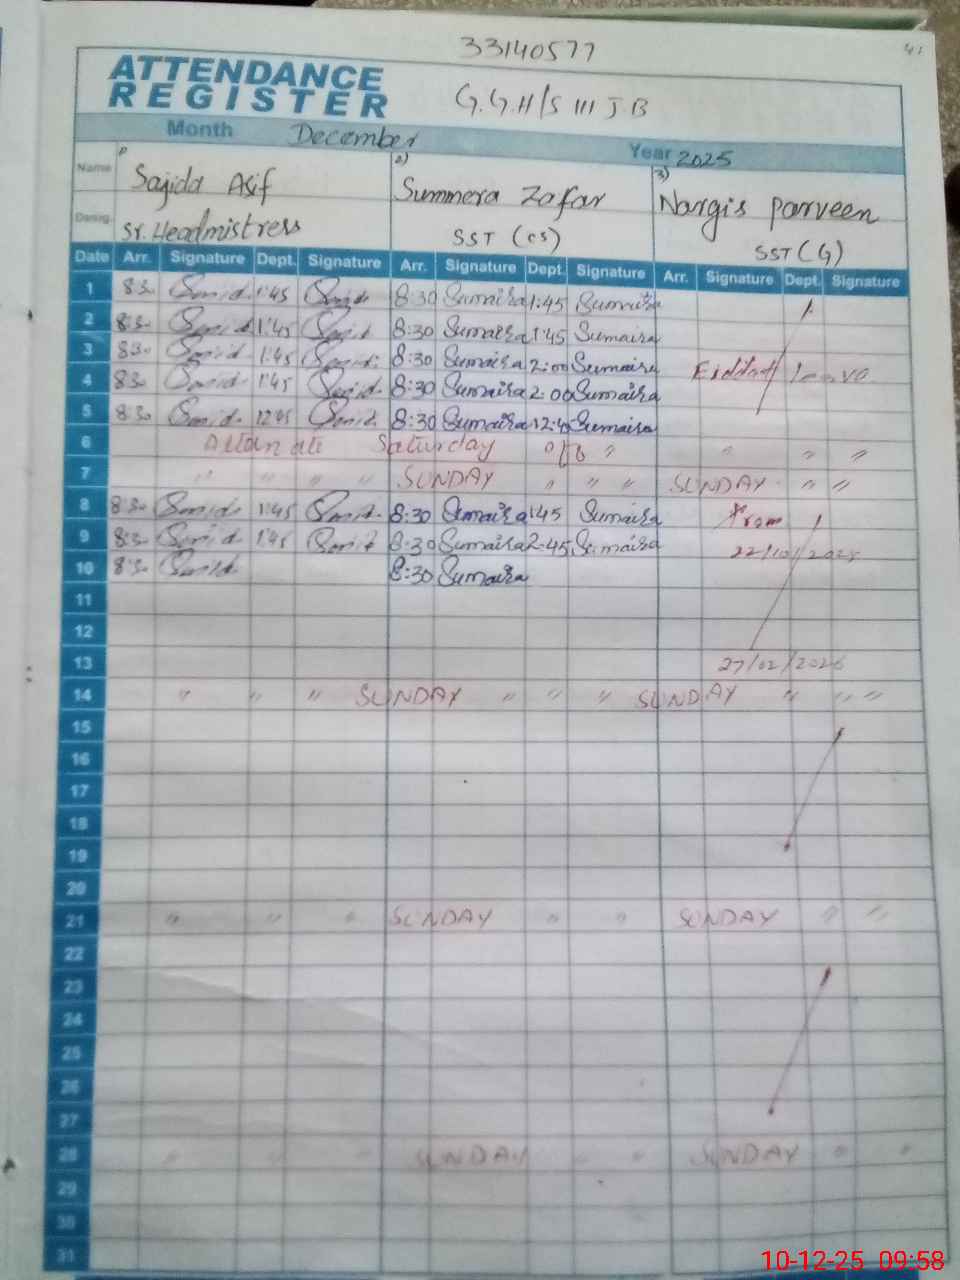 33140577
41
ATTENDANCE
REGISTER
G.G.H/S 111 J.B
Month December Year 2025
Name 1) Sajida Asif 2) Summera Zafar 3) Nargis Parveen
Desig. Sr. Headmistress SST (CS) SST (G)
Date Arr. Signature Dept. Signature Arr. Signature Dept. Signature Arr. Signature Dept. Signature
1 8:30 1:45 8:30 Sumaira 1:45 Sumaira
2 8:30 1:45 8:30 Sumaira 1:45 Sumaira
3 8:30 1:45 8:30 Sumaira 2:00 Sumaira Leave
4 8:30 1:45 8:30 Sumaira 2:00 Sumaira
5 8:30 12:45 8:30 Sumaira 12:45 Sumaira
6 Saturday off " " " "
7 " " " " SUNDAY " " " SUNDAY " "
8 8:30 1:45 8:30 Sumaira 1:45 Sumaira From
9 8:30 1:45 8:30 Sumaira 2:45 Sumaira 22/10/2025
10 8:30 8:30 Sumaira
11
12
13 27/02/2026
14 " " " SUNDAY " " " SUNDAY " " "
15
16
17
18
19
20
21 " " " SUNDAY " " SUNDAY " "
22
23
24
25
26
27
28 " " " SUNDAY " " SUNDAY " "
29
30
31
10-12-25 09:58